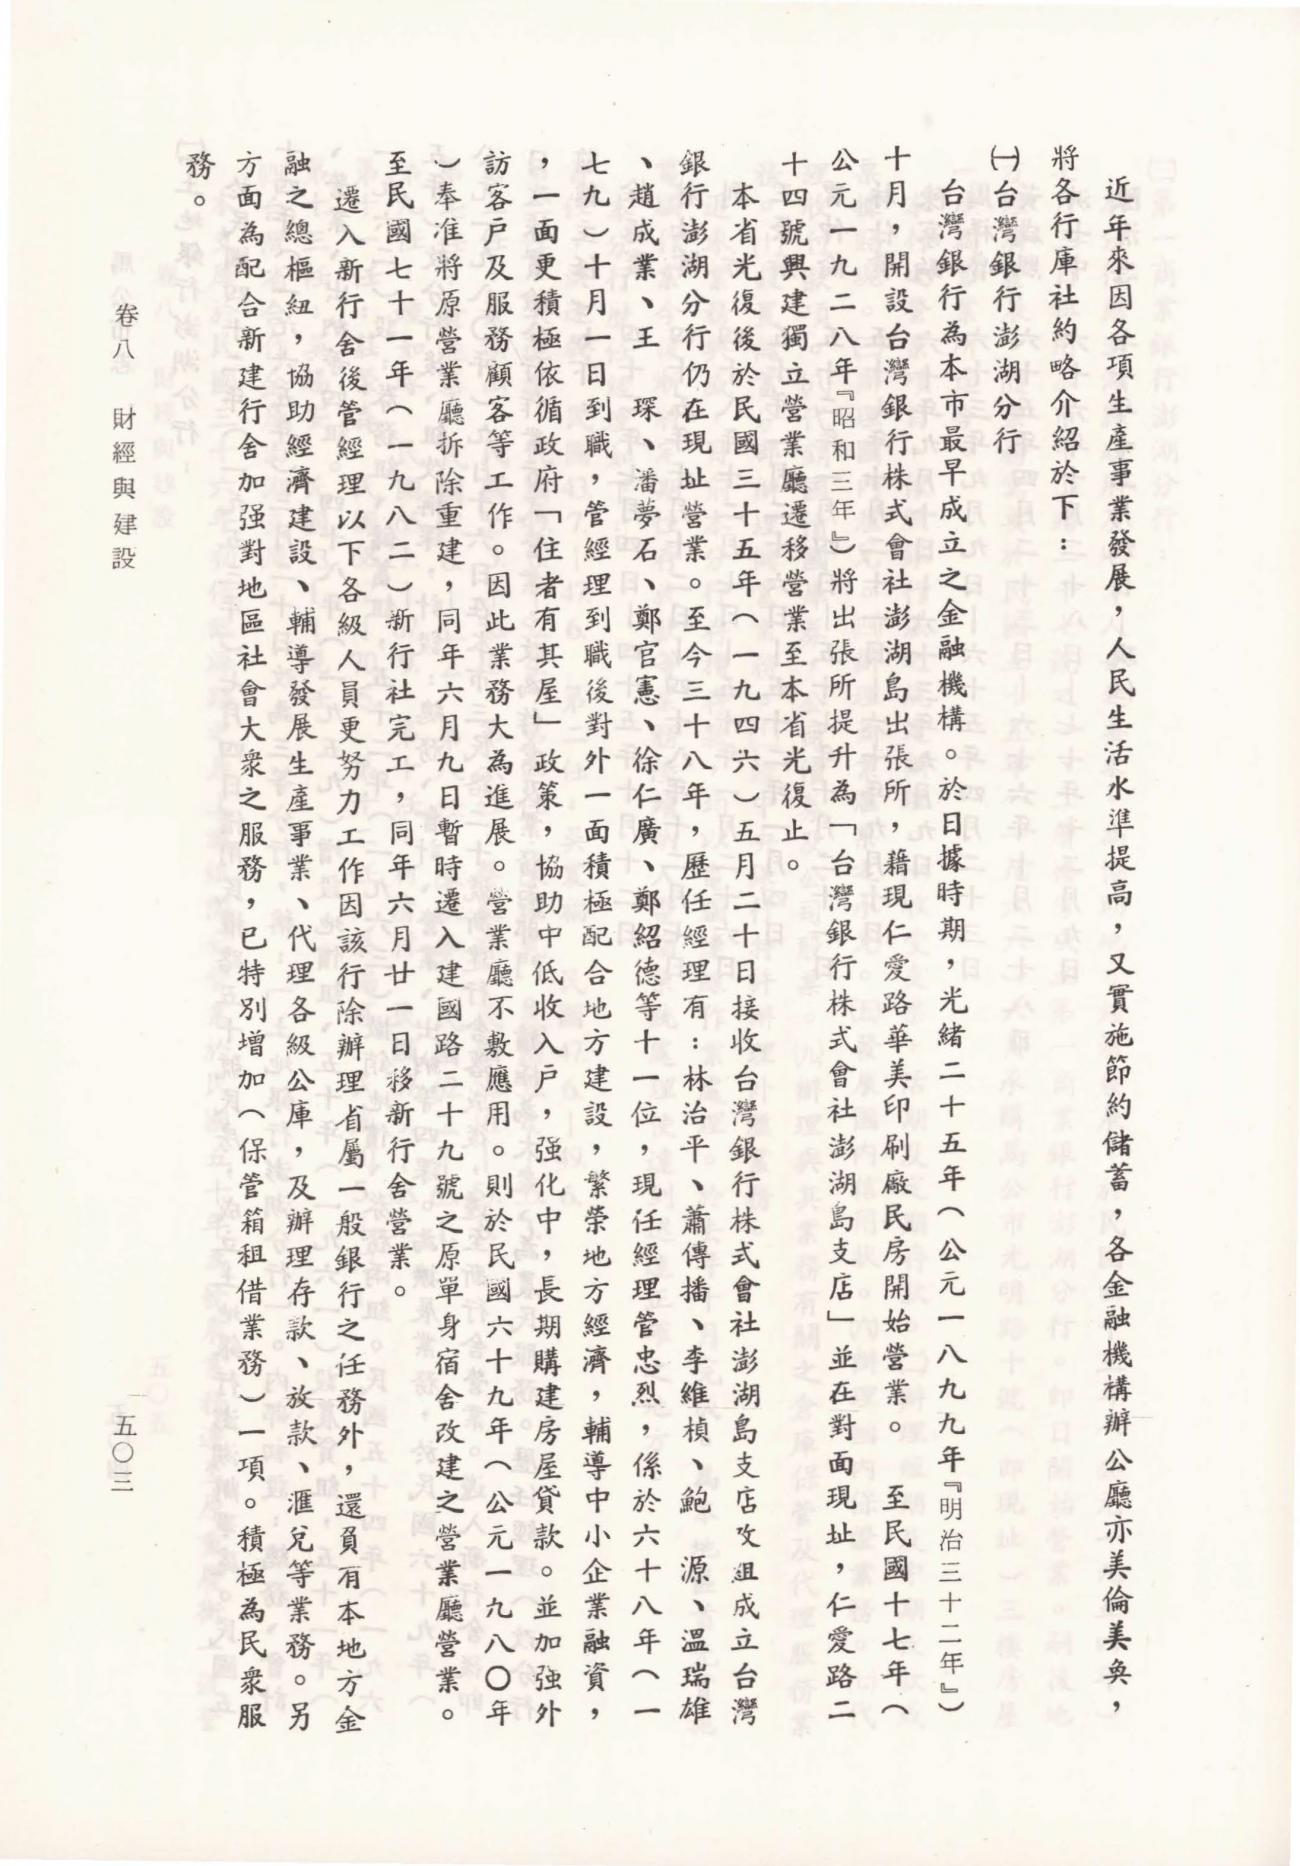 近年來因各項生產事業發展，人民生活水準提高，又實施節約儲蓄，各金融機構辦公廳亦美倫美奐，
將各行庫社約略介紹於下：
㈠台灣銀行澎湖分行
台灣銀行為本市最早成立之金融機構。於日據時期，光緒二十五年（公元一八九九年『明治三十二年』）
十月，開設台灣銀行株式會社澎湖島出張所，藉現仁愛路華美印刷廠民房開始營業。　至民國十七年（
公元一九二八年『昭和三年』）將出張所提升為「台灣銀行株式會社澎湖島支店」並在對面現址，仁愛路二
十四號興建獨立營業廳遷移營業至本省光復止。
本省光復後於民國三十五年（一九四六）五月二十日接收台灣銀行株式會社澎湖島支店改組成立台灣
銀行澎湖分行仍在現址營業。至今三十八年，歷任經理有：林治平、蕭傳播、李維楨、鮑　源、溫瑞雄
、趙成業、王　琛、潘夢石、鄭官憲、徐仁廣、鄭紹德等十一位，現任經理管忠烈，係於六十八年（一
七九）十月一日到職，管經理到職後對外一面積極配合地方建設，繁榮地方經濟，輔導中小企業融資，
，一面更積極依循政府「住者有其屋」政策，協助中低收入戶，强化中，長期購建房屋貸款。並加强外
訪客戶及服務顧客等工作。因此業務大為進展。營業廳不敷應用。則於民國六十九年（公元一九八〇年
）奉准將原營業廳拆除重建，同年六月九日暫時遷入建國路二十九號之原單身宿舍改建之營業廳營業。
至民國七十一年（一九八二）新行社完工，同年六月廿一日移新行舍營業。
遷入新行舍後管經理以下各級人員更努力工作因該行除辦理省屬一般銀行之任務外，還負有本地方金
融之總樞紐，協助經濟建設、輔導發展生產事業、代理各級公庫，及辦理存款、放款、滙兌等業務。另
方面為配合新建行舍加强對地區社會大衆之服務，已特別增加（保管箱租借業務）一項。積極為民衆服
務。
卷八　財經與建設
五〇三